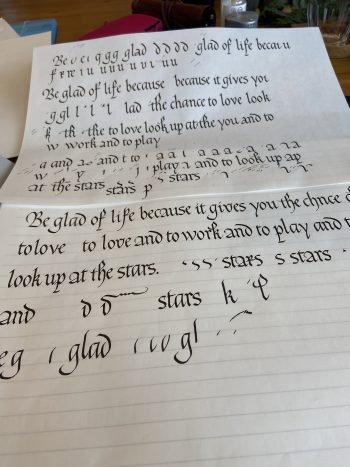 Be g g g glad d d d d glad of life becau
Be glad of life because because it gives you
g g l lad the chance to love look
k th the to love look up at the you and to
w work and to play
a and a and t to a a l a a a a
w play a and to look up ap
at the stars stars p s stars
Be glad of life because it gives you the chnce
to love to love and to work and to play and t
look up at the stars. stars s stars
and d d stars k
g glad gl